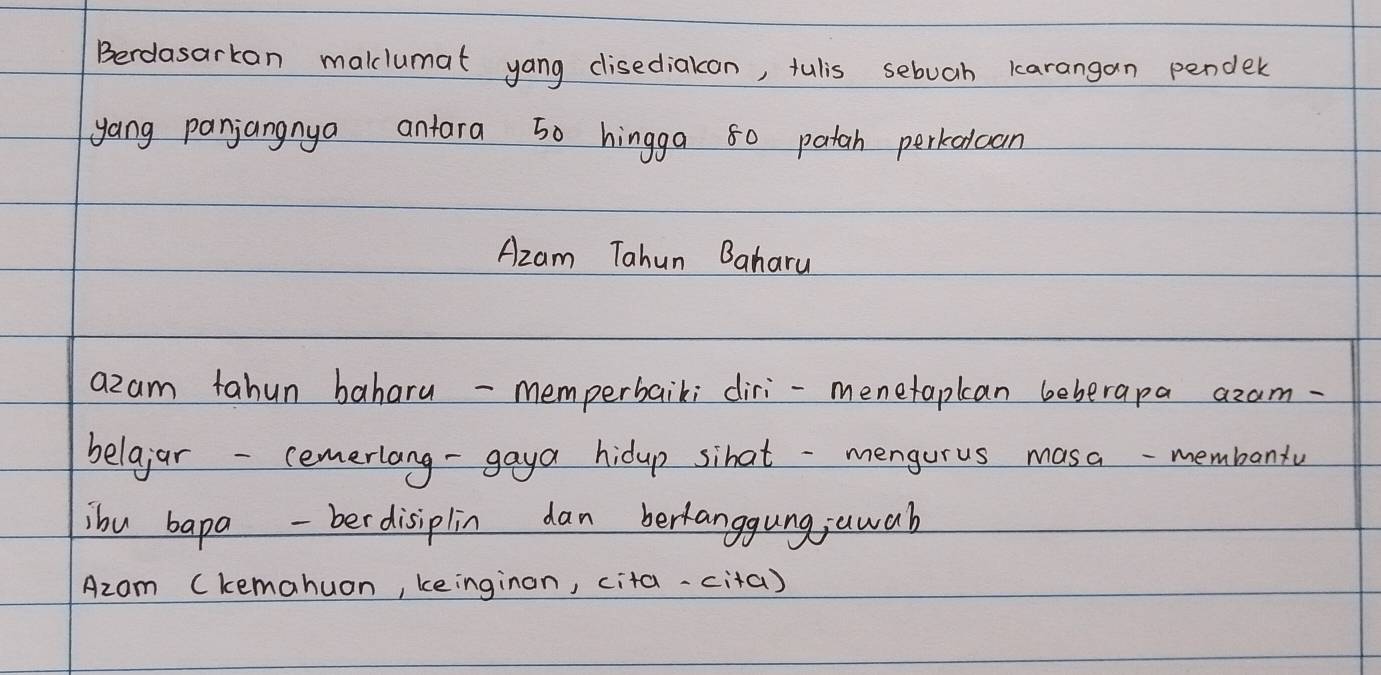 Berdasarkan maklumat yang disediakan, tulis sebuah karangan pendek
yang panjangnya antara 50 hingga 80 patah perkataan
Azam Tahun Baharu
azam tahun baharu - memperbaiki diri - menetapkan beberapa azam -
belajar - cemerlang - gaya hidup sihat - mengurus masa - membantu
ibu bapa - berdisiplin dan bertanggungjawab
Azam (kemahuan, keinginan, cita-cita)